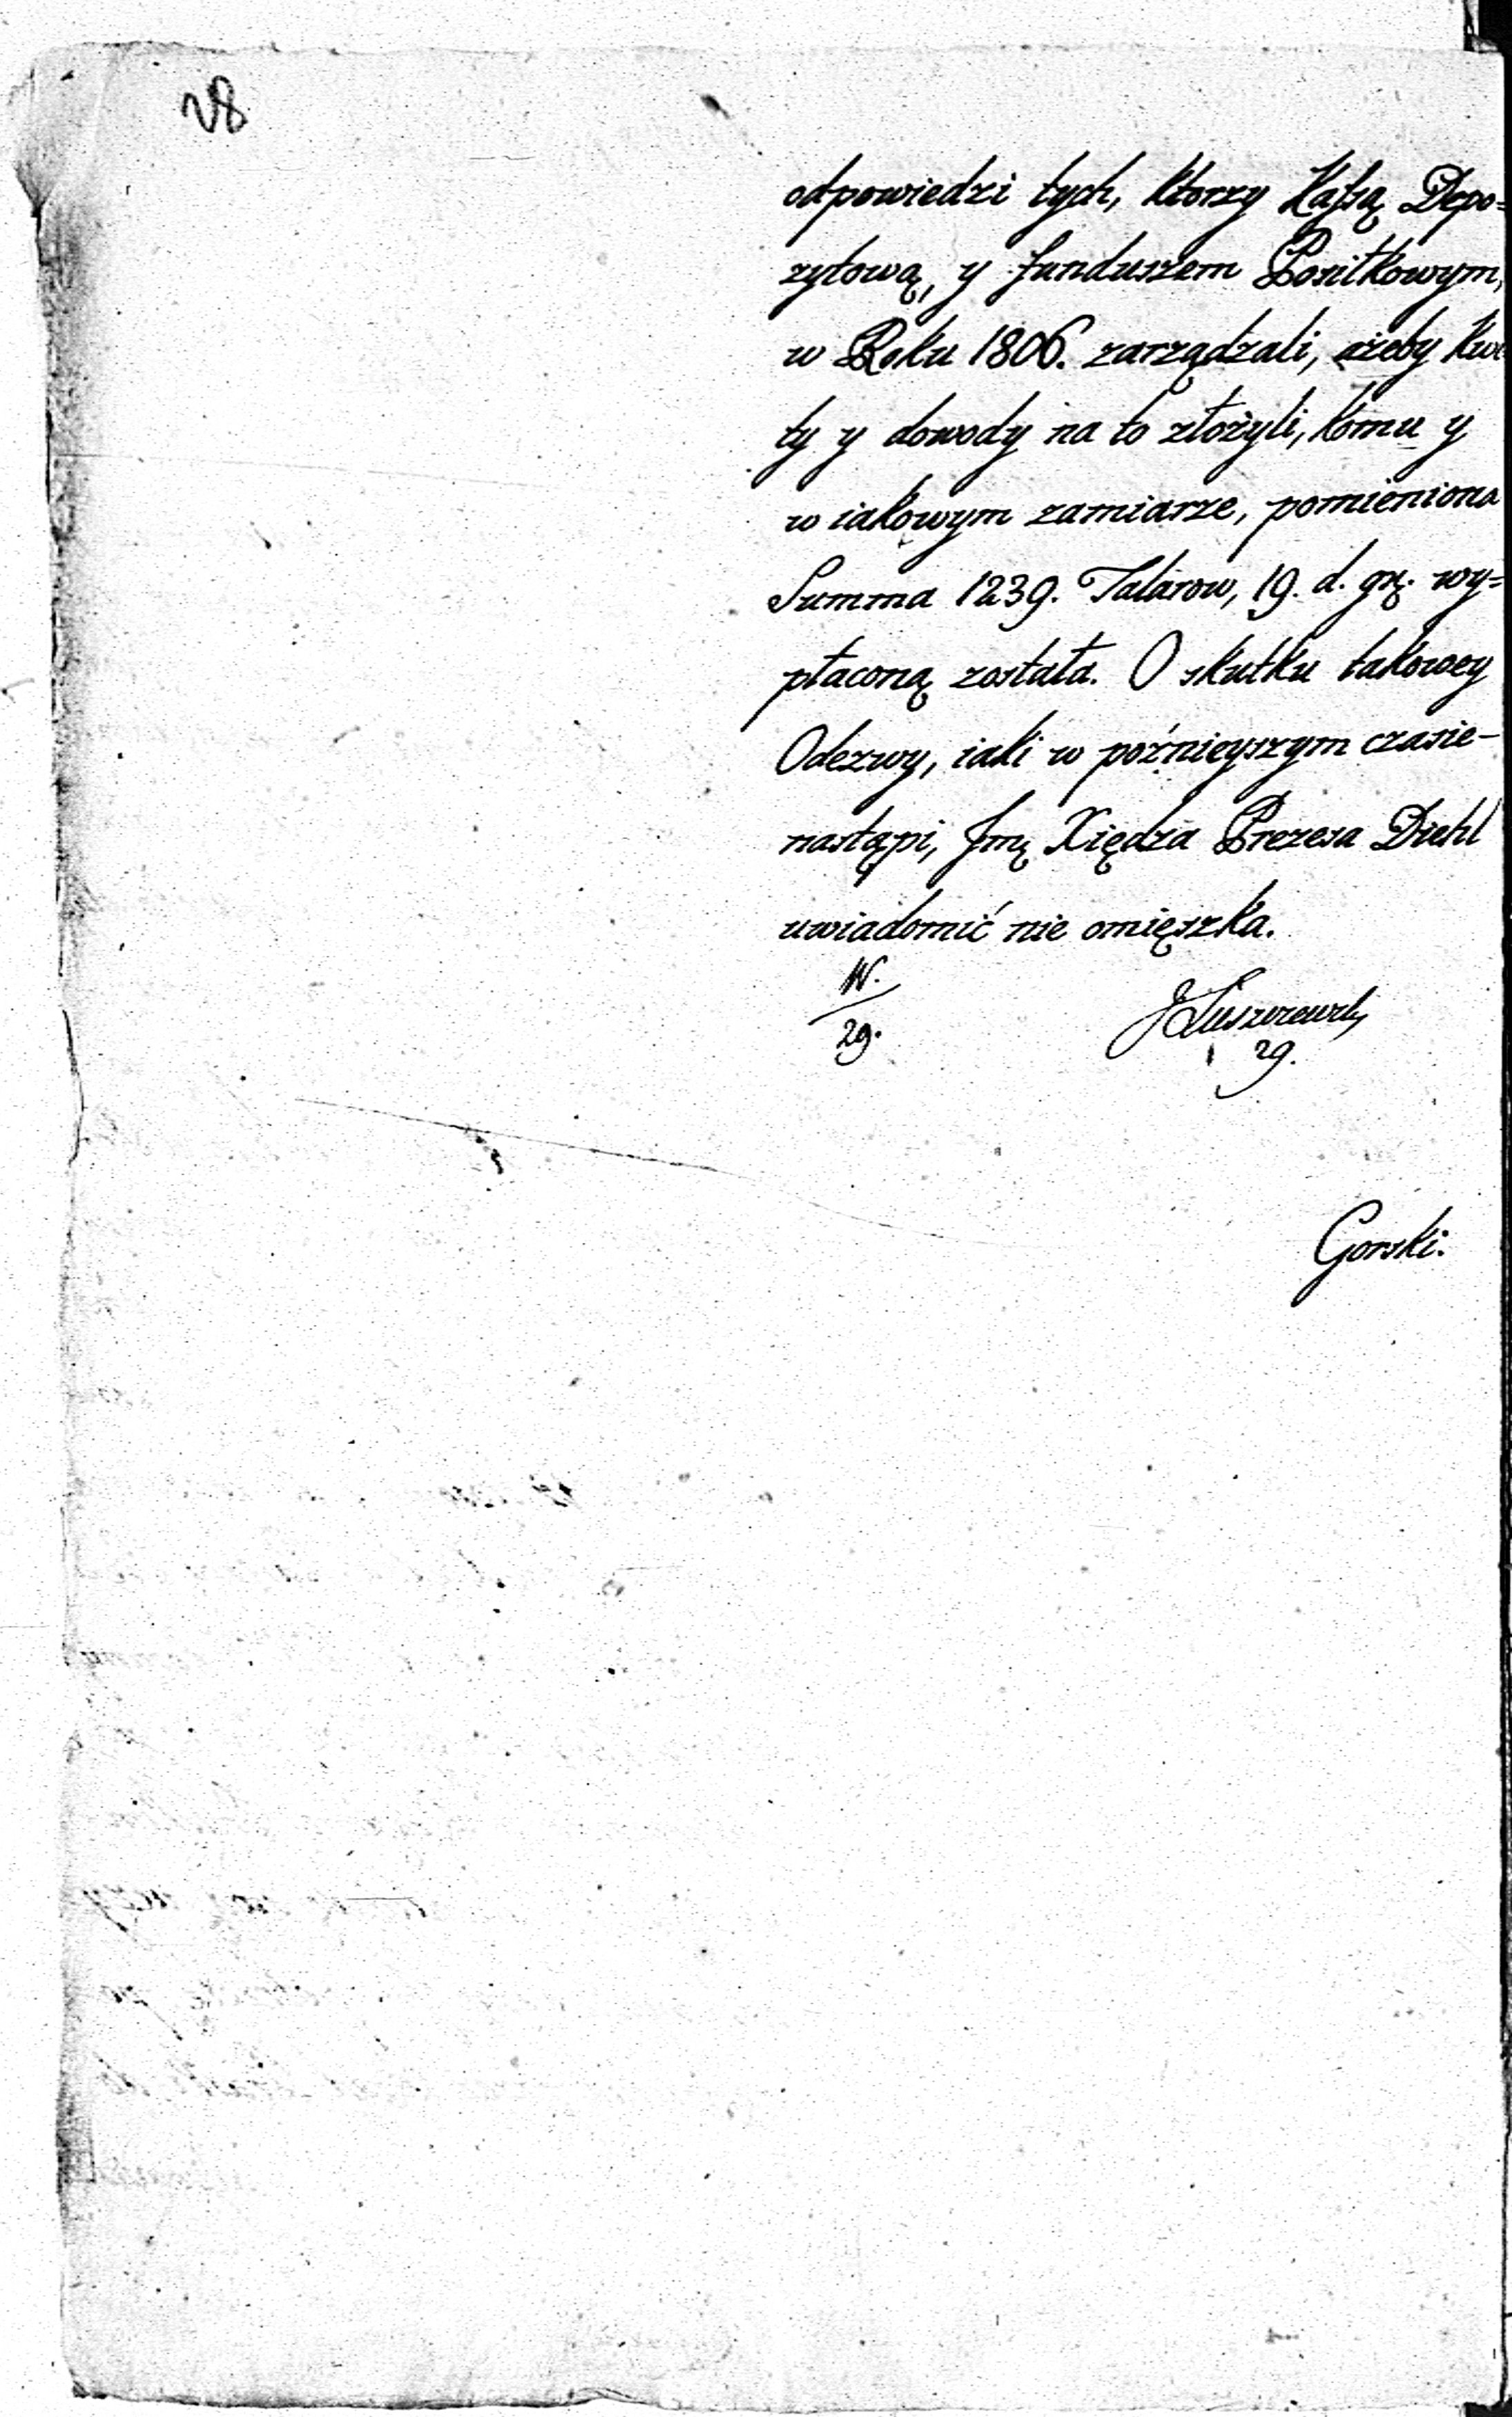 28
odpowiedzi tych, ktorzy Kaſsą Depo=
zytową, y funduszem Posiłkowym,
w Roku 1806. zarządzali, ażeby kwi
ty y dowody na to złożyli, komu y
w iakowym zamiarze, pomieniona
Summa 1239. Talarow, 19. d. gr. wy=
płaconą została. O skutku takowey
Odezwy, iaki w poźnieyszym czasie
nastąpi, Jmę Xiędza Prezesa Diehl
uwiadomić nie omięszka.
N.
29.
29.
Gorski.